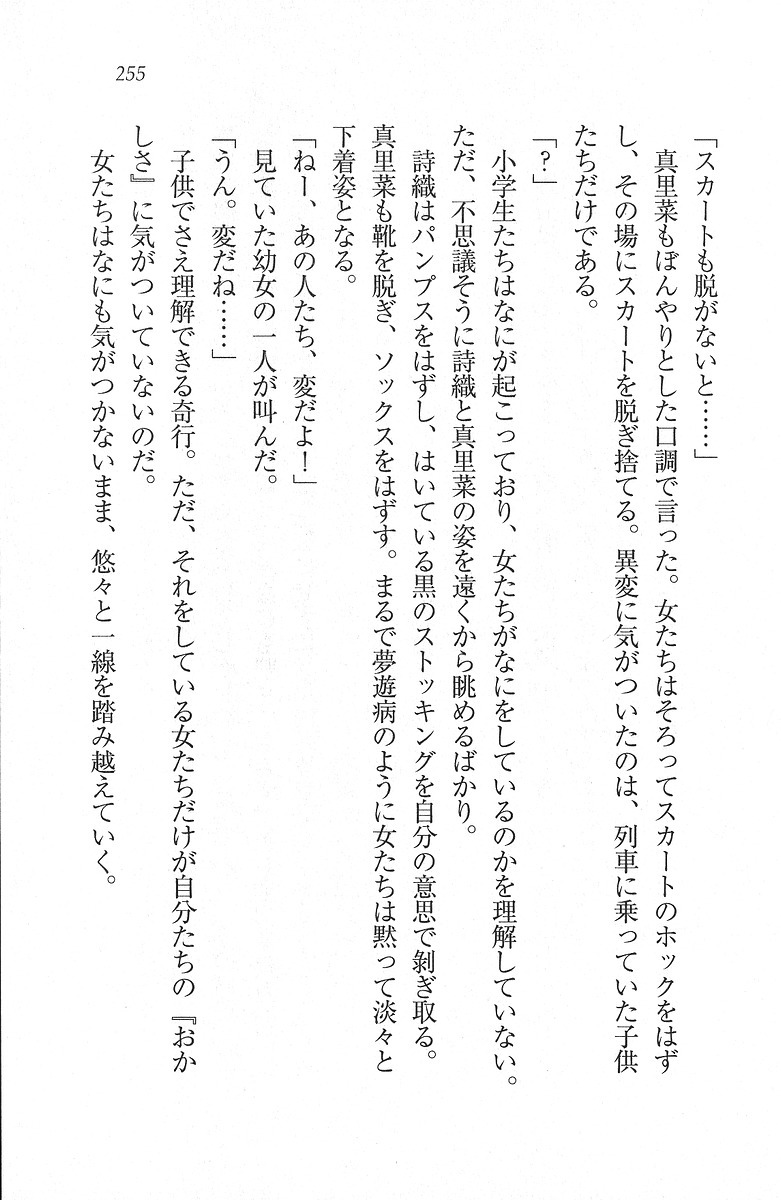 255
「スカートも脱がないと……」
真里菜もぼんやりとした口調で言った。女たちはそろってスカートのホックをはず
し、その場にスカートを脱ぎ捨てる。異変に気がついたのは、列車に乗っていた子供
たちだけである。
「？」
小学生たちはなにが起こっており、女たちがなにをしているのかを理解していない。
ただ、不思議そうに詩織と真里菜の姿を遠くから眺めるばかり。
詩織はパンプスをはずし、はいている黒のストッキングを自分の意思で剝ぎ取る。
真里菜も靴を脱ぎ、ソックスをはずす。まるで夢遊病のように女たちは黙って淡々と
下着姿となる。
「ねー、あの人たち、変だよ！」
見ていた幼女の一人が叫んだ。
「うん。変だね……」
子供でさえ理解できる奇行。ただ、それをしている女たちだけが自分たちの『おか
しさ』に気がついていないのだ。
女たちはなにも気がつかないまま、悠々と一線を踏み越えていく。